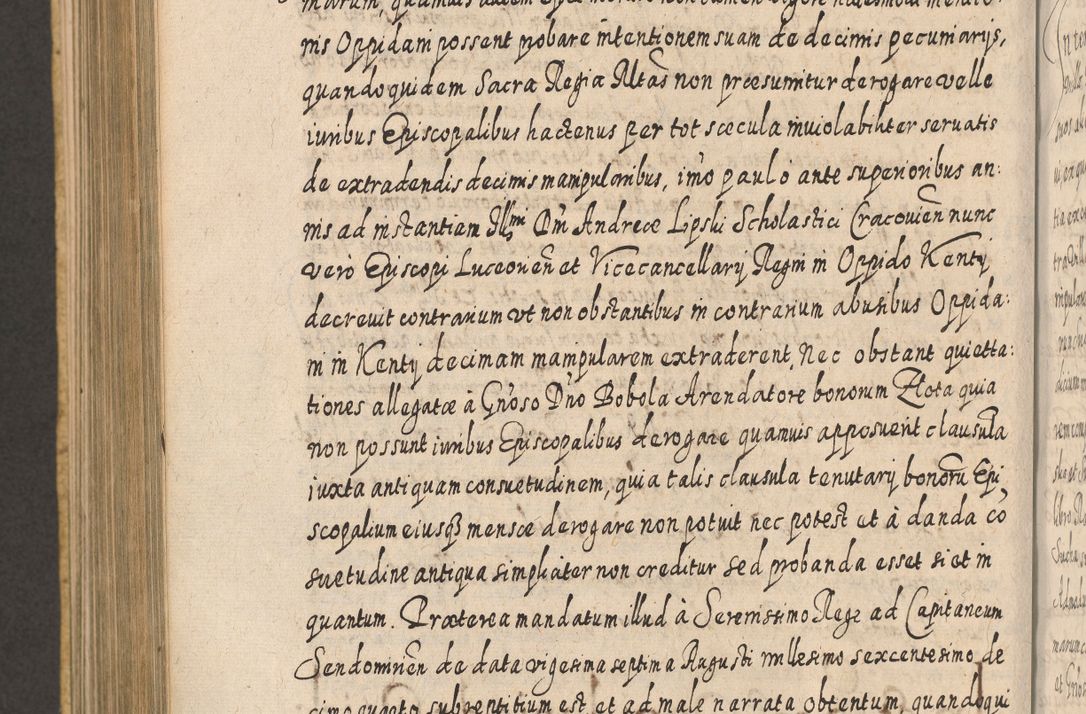 nis Oppidani possent probare intentionem suam de decimis pecuniarijs,
quandoquidem Sacra Regia Mtas non præsumitur derogare velle
iuribus Episcopalibus hactenus per tot sæcula inuiolabiliter seruatis
de extradendis decimis manipularibus, imò paulo ante superioribus an:
nis ad instantiam Illmi Dni Andreæ Lipski Scholastici Cracouien nunc
verò Episcopi Luceorien et Vicecancellarij Regni in Oppido Kenty
decreuit contrarium vt non obstantibus in contrarium abusibus Oppida:
ni in Kenty decimam manipularem extraderent. Nec obstant quietta:
tiones allegatæ à Gnoso Dno Bobola Arendatore bonorum Zlota quia
non possunt iuribus Episcopalibus derogare quamuis apposuerit clausula
iuxta antiquam consuetudinem, quia talis clausula tenutarij bonoru Epi
scopalium eiusq mensæ derogare non potuit nec potest et à danda co
suetudine antiqua simpliciter non creditur sed probanda esset si et in
quantum. Præterea mandatum illud à Serenissimo Rege ad Capitaneum
Sendomirien de data vigesima septima Augusti millesimo sexcentesimo de
cimo quarto subreptitium est et ad male narrata obtentum, quandoqui